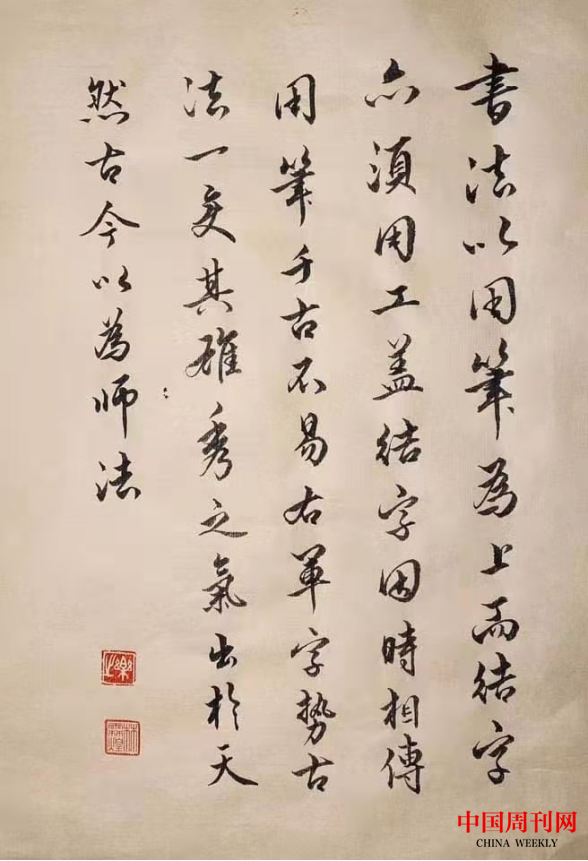 書法以用筆為上而結字
亦須用工蓋結字因時相傳
用筆千古不易右軍字勢古
法一變其雄秀之氣出於天
然古今以為師法
中国周刊网
CHINA WEEKLY